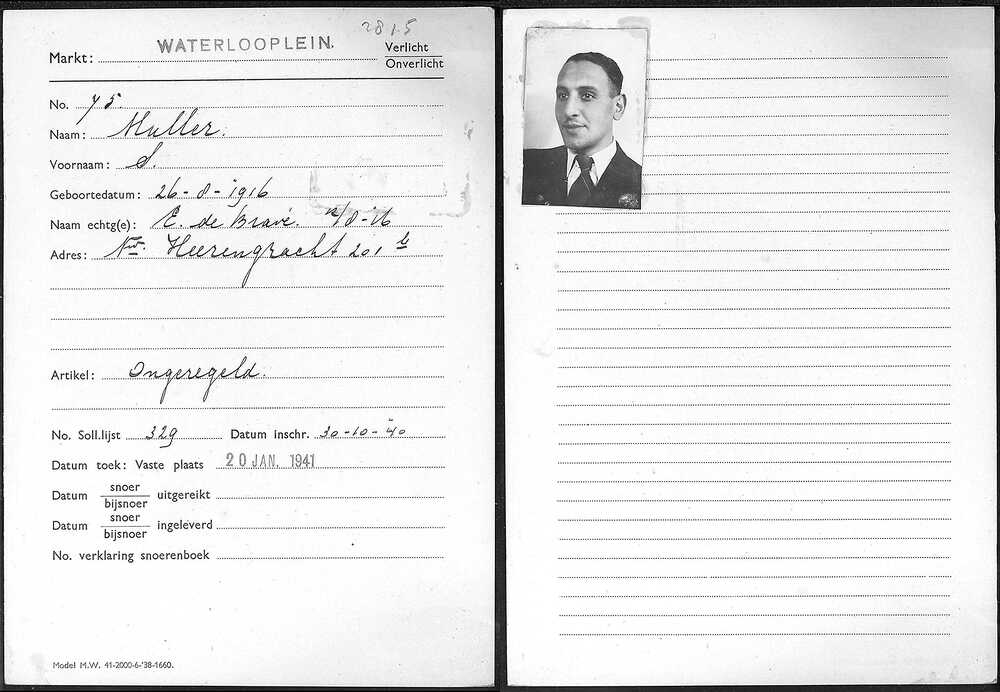 2815
Markt: WATERLOOPLEIN. Verlicht
Onverlicht
No. 75
Naam: Muller.
Voornaam: S.
Geboortedatum: 26-8-1916
Naam echtg(e): E. de Brave. 12/8-16
Adres: Nwe. Heerengracht 201 b
Artikel: Ongeregeld.
No. Soll.lijst 329 Datum inschr. 30-10-40
Datum toek: Vaste plaats 20 JAN. 1941
Datum snoer
bijsnoer uitgereikt
Datum snoer
bijsnoer ingeleverd
No. verklaring snoerenboek
Model M.W. 41-2000-6-'38-1660.